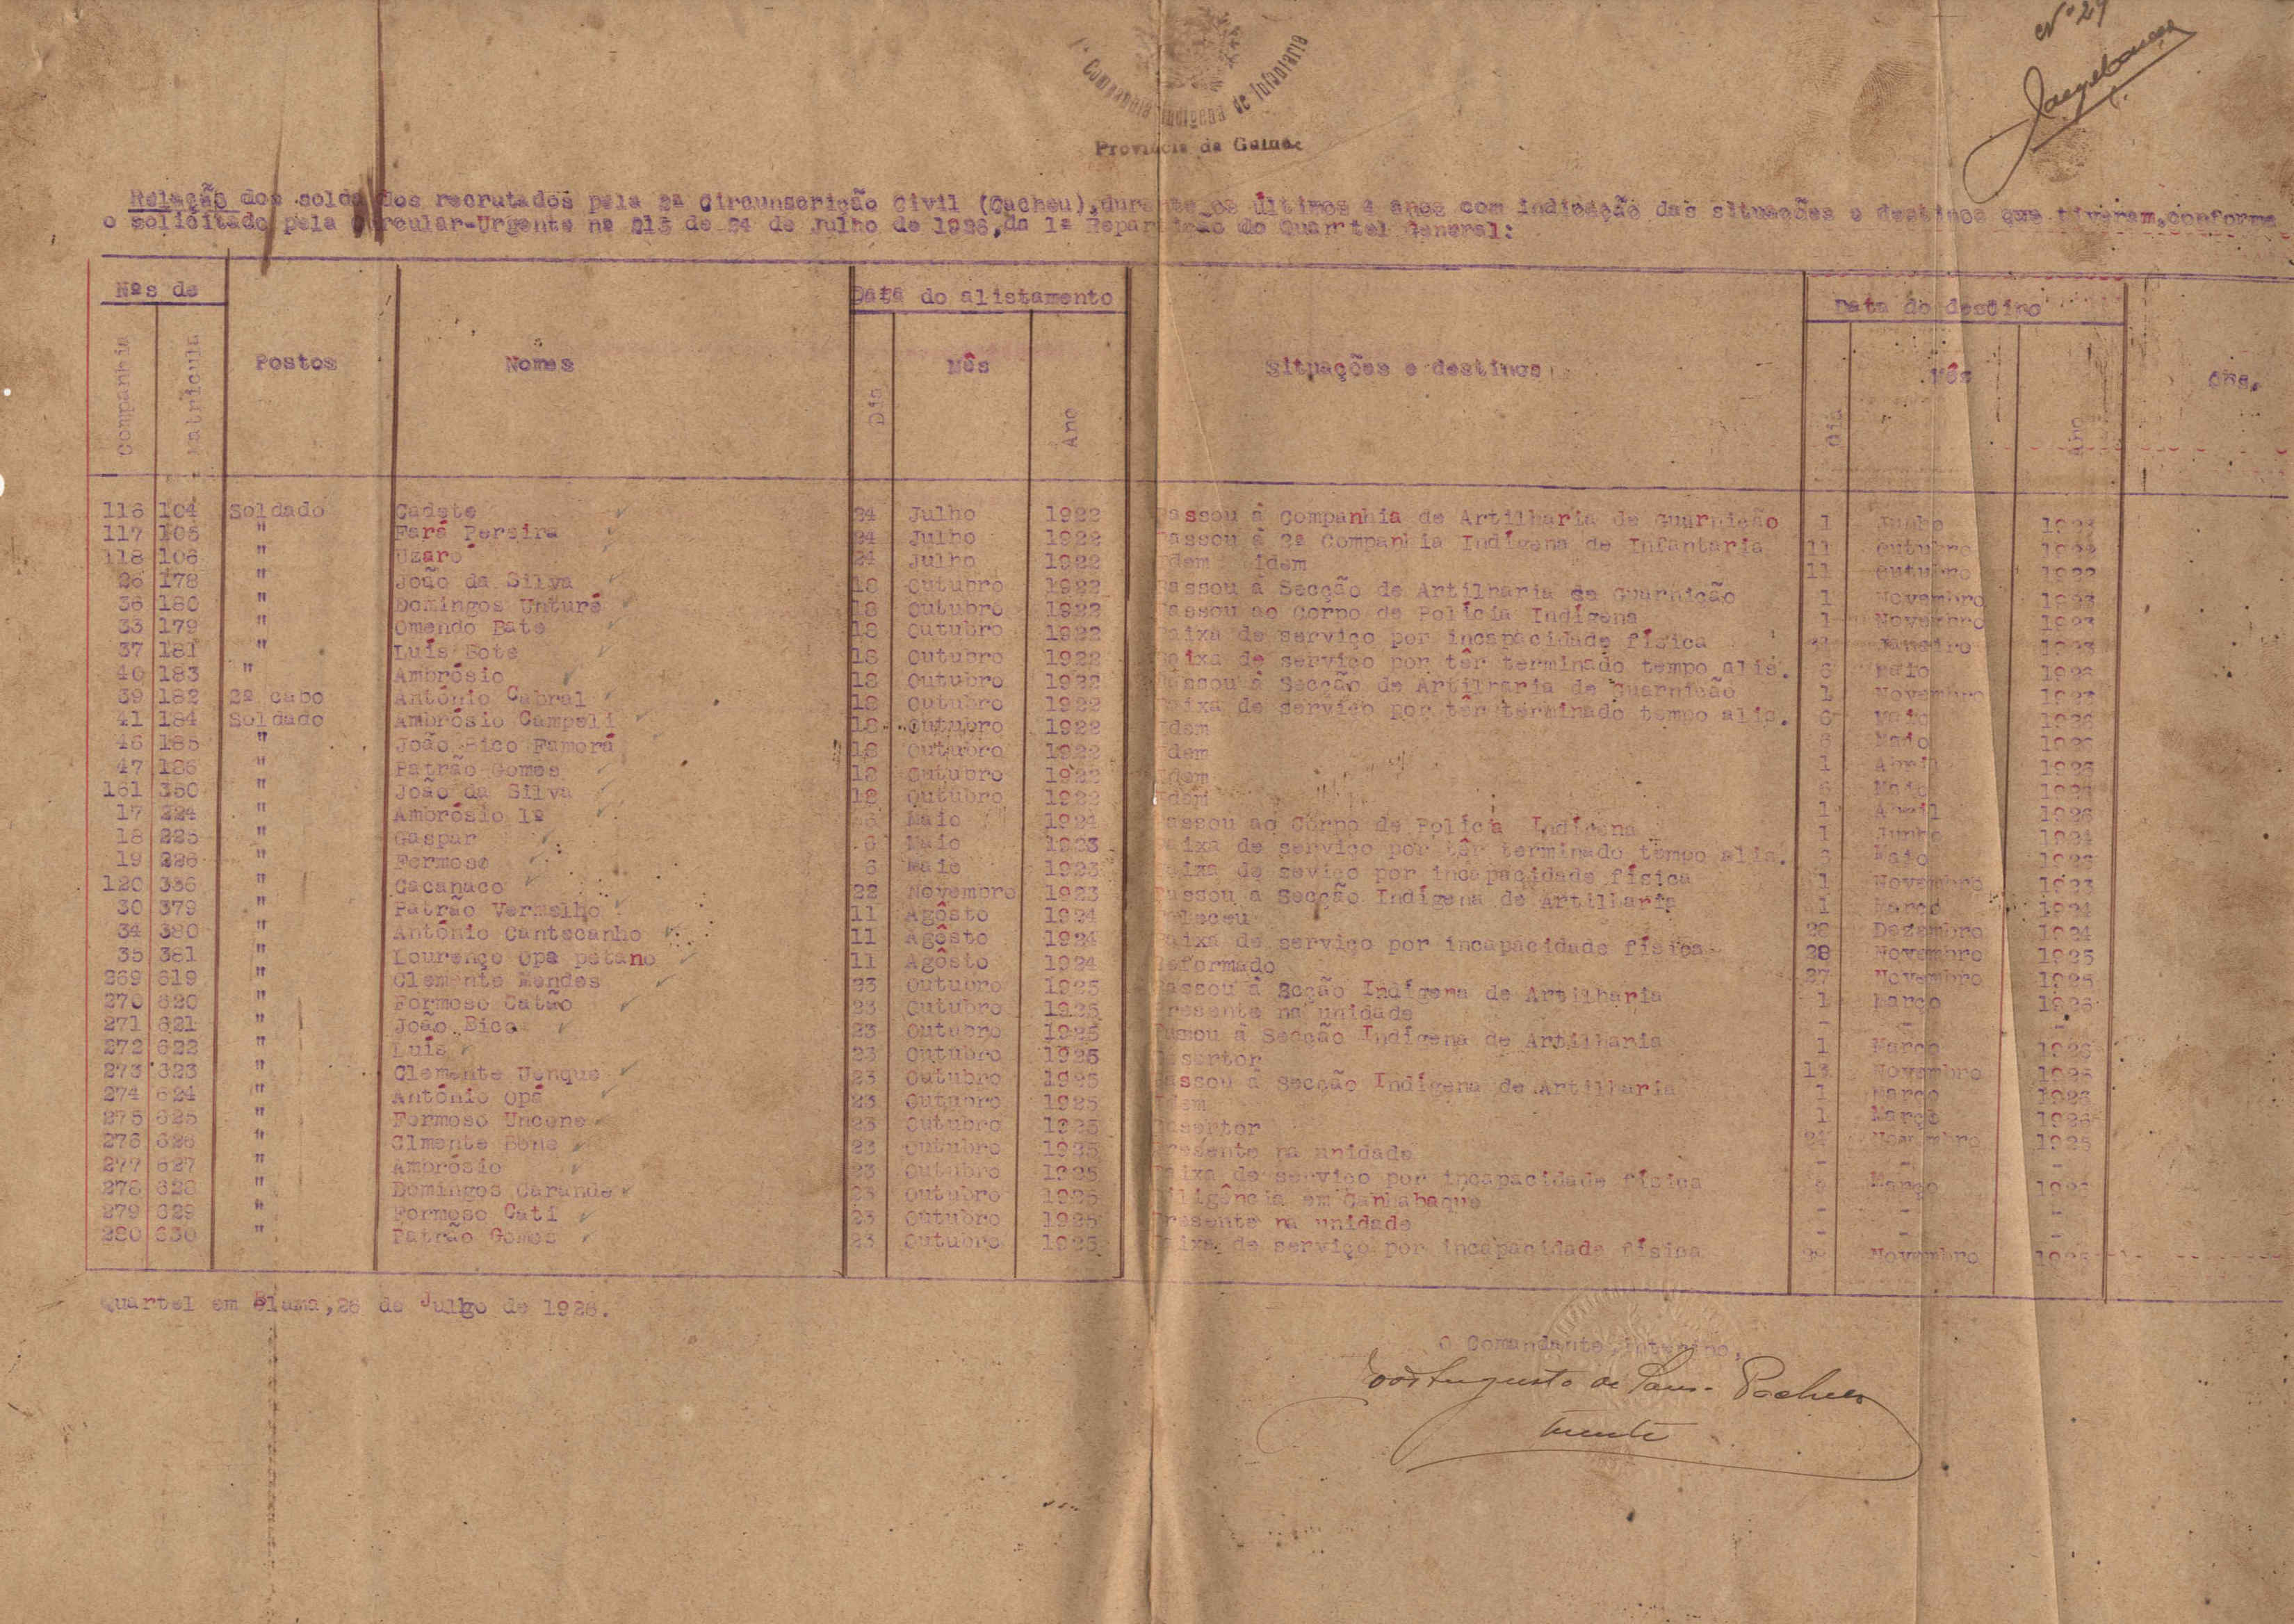 Nº 29
1ª Companhia Indígena de Infantaria
Província da Guiné
Relação dos soldados recrutados pela 2ª Circunscrição Civil (Cacheu),durante os últimos 4 anos com indicação das situações e destinos que tiveram,conforme
o solicitado pela Circular-Urgente nº 213 de 24 de Julho de 1926,da 1ª Repartição do Quartel General:
Nºs de Data do alistamento Data do destino
Companhia Matricula Postos Nomes Dia Mês Ano Situações e destinos Dia Mês Ano Obs.
116 104 Soldado Cadete 24 Julho 1922 Passou à Companhia de Artilharia de Guarnição 1 Junho 1923
117 105 " Fará Pereira 24 Julho 1922 Passou à 2ª Companhia Indígena de Infantaria 11 Outubro 1922
118 106 " Uzaró 24 Julho 1922 Idem idem 11 Outubro 1922
26 178 " João da Silva 18 Outubro 1922 Passou à Secção de Artilharia de Guarnição 1 Novembro 1923
36 180 " Domingos Unturé 18 Outubro 1922 Passou ao Corpo de Polícia Indígena 1 Novembro 1923
33 179 " Omendo Bate 18 Outubro 1922 Baixa de serviço por incapacidade física Janeiro 1923
37 181 " Luís Bote 18 Outubro 1922 Baixa de serviço por têr terminado tempo alis. 6 Maio 1926
40 183 " Ambrósio 18 Outubro 1922 Passou à Secção de Artilharia de Guarnição 1 Novembro 1923
39 182 2º cabo António Cabral 18 Outubro 1922 Baixa de serviço por têr terminado tempo alis. 6 Maio 1926
41 184 Soldado Ambrósio Campeli 18 Outubro 1922 Idem 6 Maio 1926
46 185 " João Bico Famorá 18 Outubro 1922 Idem 1 Abril 1926
47 186 " Patrão Gomes 18 Outubro 1922 Idem 6 Maio 1926
161 350 " João da Silva 18 Outubro 1922 Idem 1 Abril 1926
17 224 " Ambrósio 1º 6 Maio 1924 Passou ao Corpo de Polícia Indígena 1 Junho 1924
18 225 " Gaspar 6 Maio 1923 Baixa de serviço por têr terminado tempo alis. 6 Maio 1926
19 226 " Formoso 6 Maio 1923 Baixa de seviço por incapacidade física 1 Novembro 1923
120 336 " Cacanaco 22 Novembro 1923 Passou à Secção Indígena de Artilharia 1 Março 1924
30 379 " Patrão Vermelho 11 Agôsto 1924 Faleceu 26 Dezembro 1924
34 380 " António Cantecanho 11 Agôsto 1924 Baixa de serviço por incapacidade física 28 Novembro 1925
35 381 " Lourenço Opa petano 11 Agôsto 1924 Reformado 27 Novembro 1925
269 619 " Clemente Mendes 23 Outubro 1925 Passou à Scção Indígena de Artilharia 1 Março 1926
270 620 " Formoso Catão 23 Outubro 1925 Presente na unidade - - -
271 621 " João Bico 23 Outubro 1925 Passou à Secção Indígena de Artilharia 1 Março 1926
272 622 " Luís 23 Outubro 1925 Desertor 13 Novembro 1925
273 623 " Clemente Uenque 23 Outubro 1925 Passou à Secção Indígena de Artilharia 1 Março 1926
274 624 " António Opá 23 Outubro 1925 Idem 1 Março 1926
275 625 " Formoso Uncone 23 Outubro 1925 Desertor 24 Novembro 1925
276 626 " Clmente Bone 23 Outubro 1925 Presente na unidade - - -
277 627 " Ambrósio 23 Outubro 1925 Baixa de serviço por incapacidade física Março 1926
278 628 " Domingos Carande 23 Outubro 1925 Diligência em Canhabaque - - -
279 629 " Formoso Cati 23 Outubro 1925 Presente na unidade - - -
280 630 " Patrão Gomes 23 Outubro 1925 Baixa de serviço por incapacidade física Novembro 1925
Quartel em Blama,26 de Julgo de 1926.
O Comandante interino,
Augusto de Pacheco
Tenente